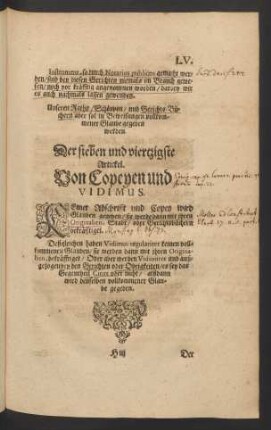 LV.
Instrumenta, so durch Notarien
den/ sind bey diesen Gerichten niemals im Brauch gewe-
sen/ noch vor kräfftig angenommen worden/ darbey wir
es auch nachmals lassen gewenden.
Unseren Raths/ Schöppen/ und Gerichts Bü-
chern aber sol in Beweisungen vollkom-
mener Glaube gegeben
werden.
Der sieben und viertzigste
Articul.
Von Copeyen und
VIDIMUS.
Keiner Abschrifft und Copey wird
Glauben gegeben/ sie werde dann mit ihren
Originalien, Stadt/ oder Gerichtsbüchern
bekräfftiget.
Desgleichen haben Vidimus regulariter keinen voll-
kommenen Glauben/ sie werden dann mit ihren Origina-
lien, bekräfftiget/ Oder aber werden Vidimirt und auß-
gezogen von den Gerichten oder Obrigkeiten/ es sey das
Gegentheil Citirt oder nicht/ alsdann
wird denselben vollkommener Glau-
be gegeben.
H iij
Der